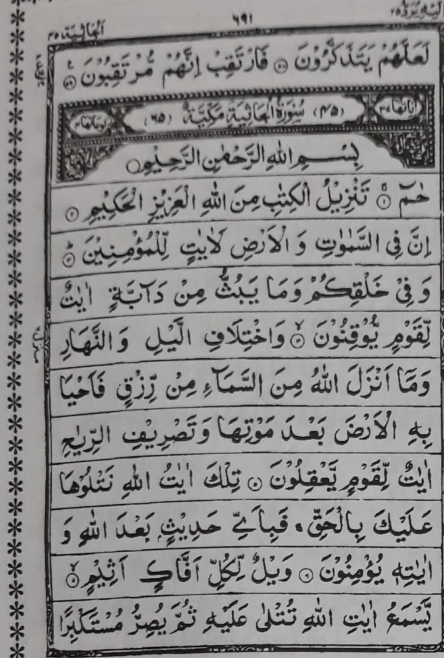 اِلَیْهِ یُرَدُّ ۲۵ ۶۹۱ اَلْجَاثِیَة ۴۵
لَعَلَّهُمْ یَتَذَكَّرُوْنَ ۝ فَارْتَقِبْ اِنَّهُمْ مُّرْتَقِبُوْنَ ۝
اٰیَاتُهَا ۳۷ (۴۵) سُوْرَةُ الْجَاثِیَةِ مَكِّیَّةٌ (۶۵) رُكُوْعَاتُهَا ۴
بِسْمِ اللهِ الرَّحْمٰنِ الرَّحِیْمِ
حٰمٓ ۝ تَنْزِیْلُ الْكِتٰبِ مِنَ اللهِ الْعَزِیْزِ الْحَكِیْمِ ۝
اِنَّ فِی السَّمٰوٰتِ وَ الْاَرْضِ لَاٰیٰتٍ لِّلْمُؤْمِنِیْنَ ۝
وَ فِیْ خَلْقِكُمْ وَمَا یَبُثُّ مِنْ دَآبَّةٍ اٰیٰتٌ
لِّقَوْمٍ یُّوْقِنُوْنَ ۝ وَاخْتِلَافِ الَّیْلِ وَ النَّهَارِ
وَمَا اَنْزَلَ اللهُ مِنَ السَّمَآءِ مِنْ رِّزْقٍ فَاَحْیَا
بِهِ الْاَرْضَ بَعْدَ مَوْتِهَا وَتَصْرِیْفِ الرِّیٰحِ
اٰیٰتٌ لِّقَوْمٍ یَّعْقِلُوْنَ ۝ تِلْكَ اٰیٰتُ اللهِ نَتْلُوْهَا
عَلَیْكَ بِالْحَقِّ ۚ فَبِاَیِّ حَدِیْثٍۭ بَعْدَ اللهِ وَ
اٰیٰتِهٖ یُؤْمِنُوْنَ ۝ وَیْلٌ لِّكُلِّ اَفَّاكٍ اَثِیْمٍ ۝
یَّسْمَعُ اٰیٰتِ اللهِ تُتْلٰی عَلَیْهِ ثُمَّ یُصِرُّ مُسْتَكْبِرًا